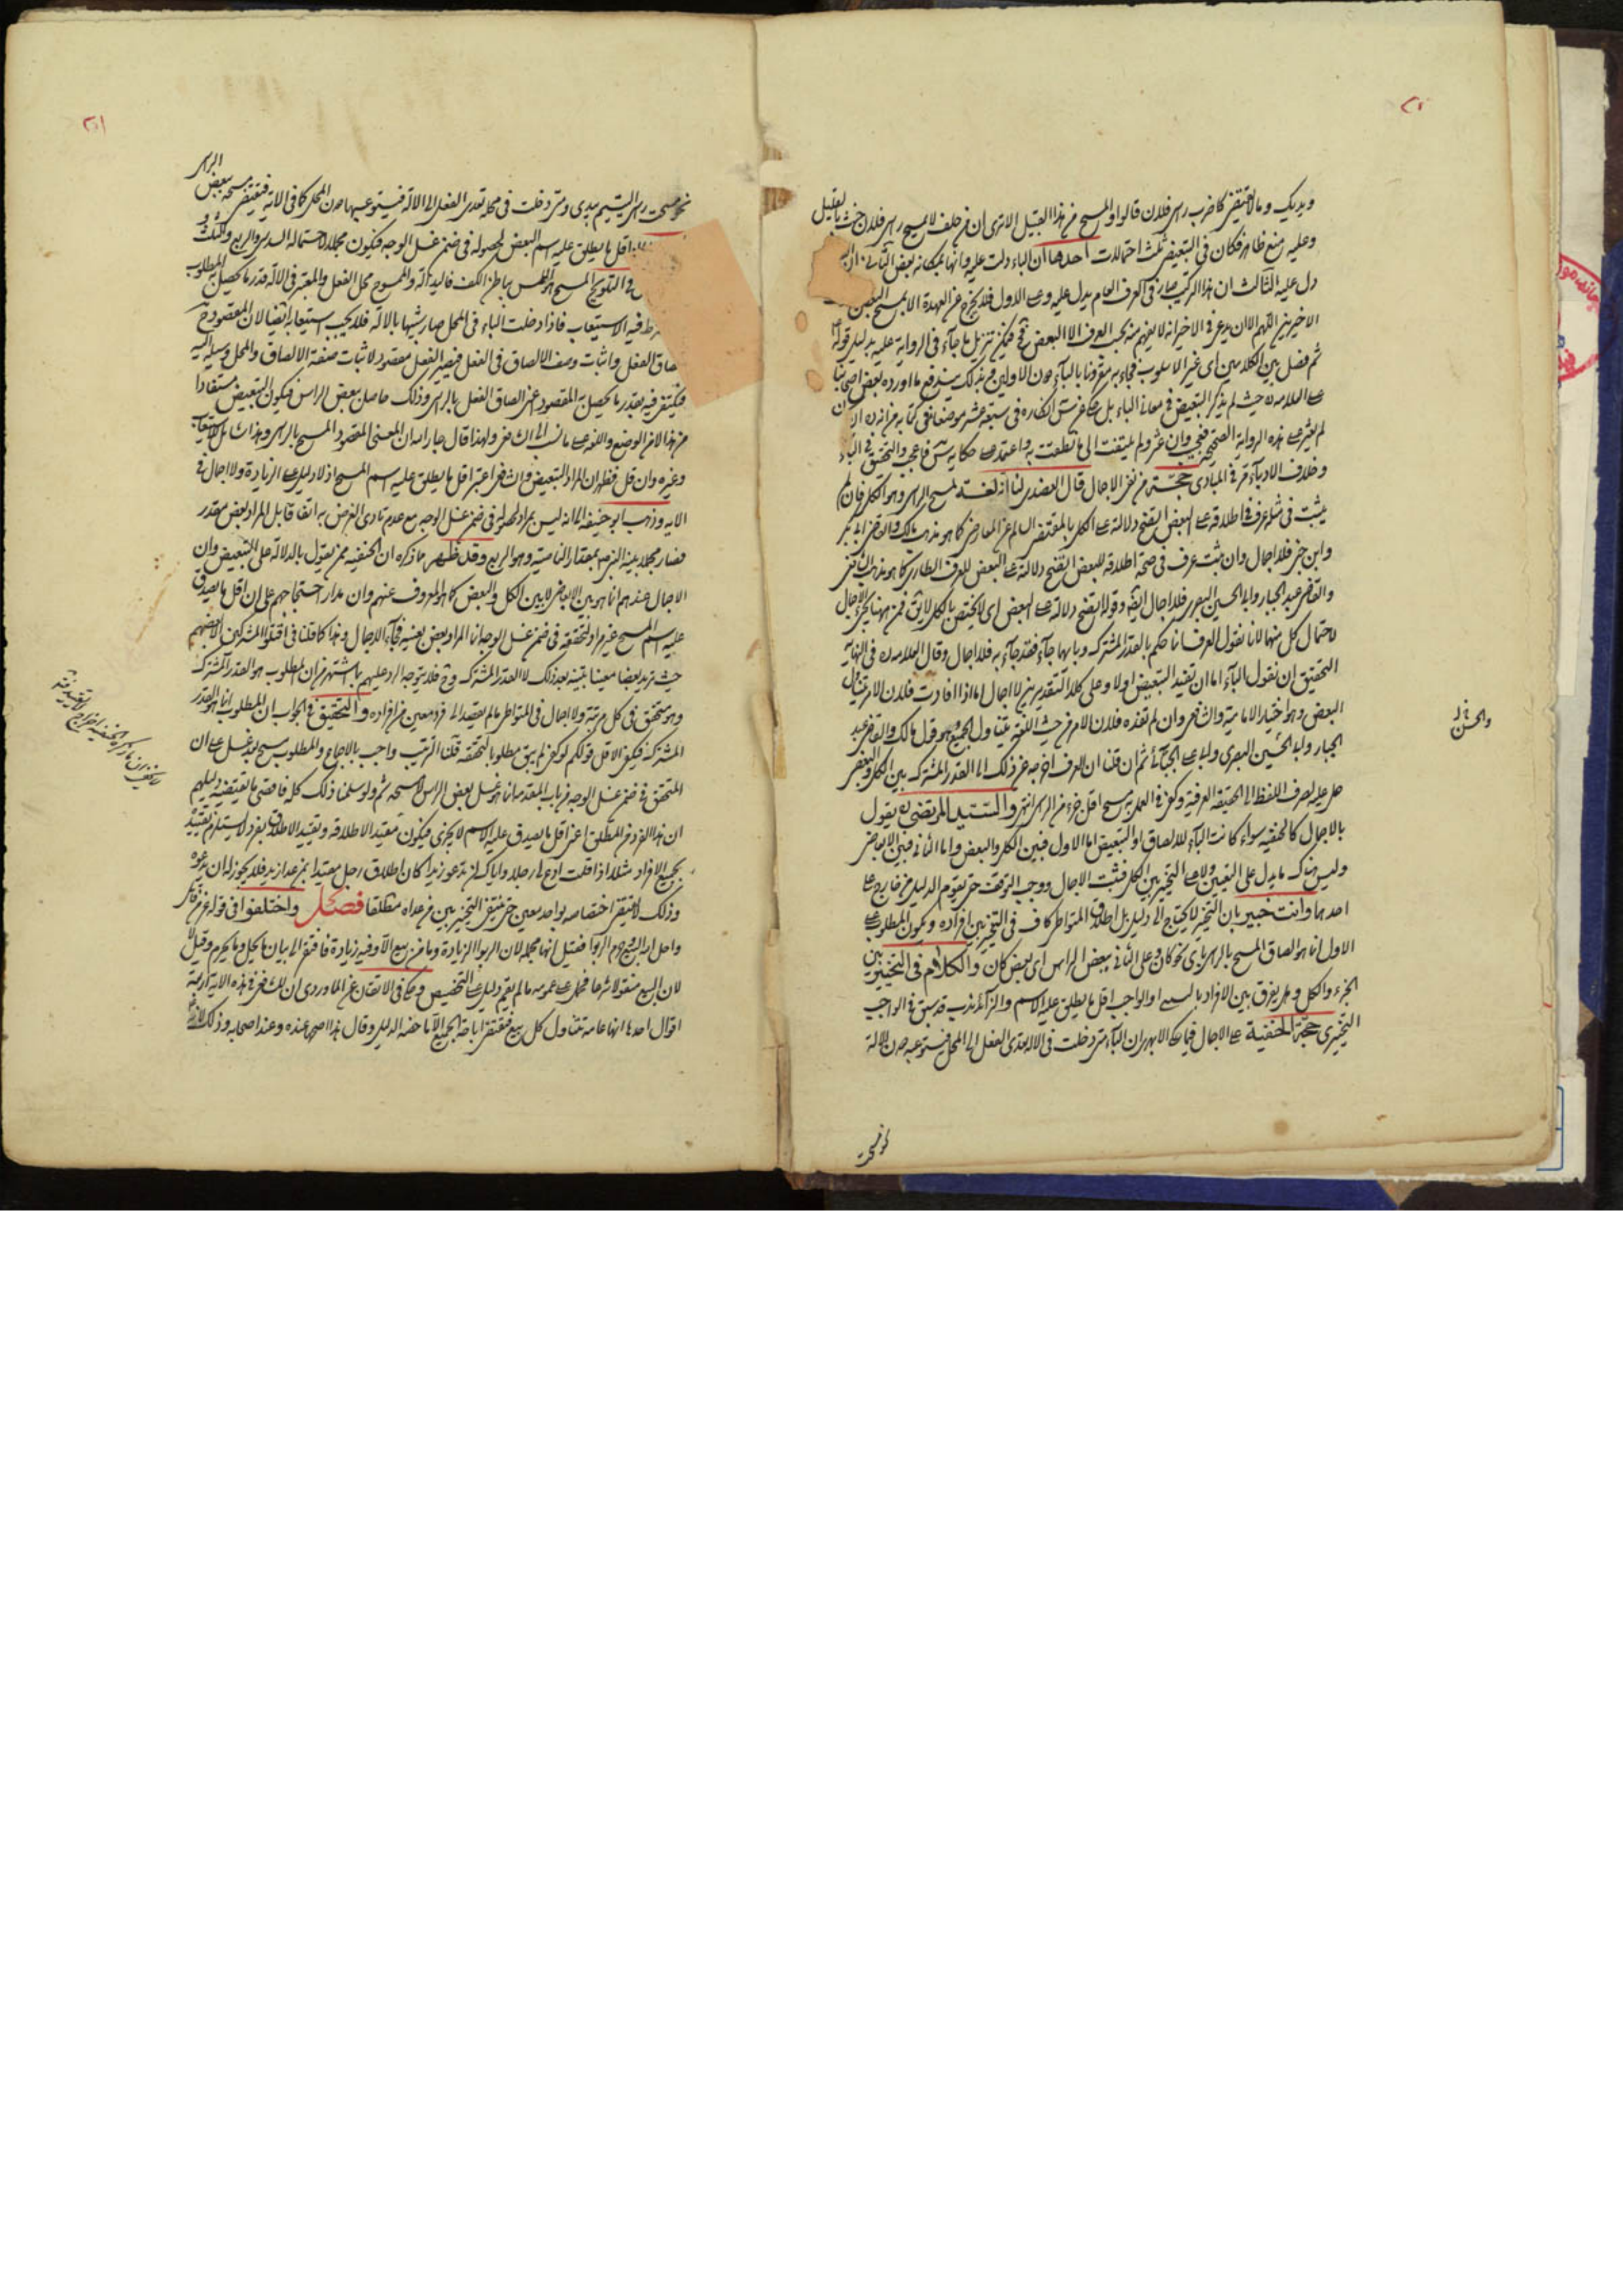 وبدیک وما لا یقتضی کما ضرب راس فلان قالوا والمسح من هذا القبیل الا تری ان من حلف لا یمسح راس فلان حنث بالقلیل
وعلیه منع ظاهر فکان فی التبعیض ثلث احتمالات احدها ان الباء دلت علیه وانها بمکانه بعض الثانی
دل علیه الثالث ان هذا الترکیب صار فی العرف العام یدل علیه وعلی الاول فلا یخرج عن العهدة الا بمسح البعض
الاخیرین اللهم الا ان یدعی فی الاخیر انه لا یفهم منه بحسب العرف الا البعض فح فیمکن تنزیل ما جاء فی الروایة علیه بدلیل قوله
ثم فصل بین الکلامین ای غیر الاسلوب فجاء به مقرونا بالباء دون الاولین وبذلک یندفع ما اورده بعض اصحابنا
علی العلامه حیث لم یذکر التبعیض فی معانی الباء بل حکی عن س انکاره فی سبعة عشر موضعا من کتابه
لم یعثر علی هذه الروایة الصحیحة فعجیب وان عثر ولم یلتفت الی ما نطقت به واعتمد علی حکایة س فاعجب والتحقیق فی الباء
وخلاف الادباء مر فی المبادی حجة من نفی الاجمال قال العضدی لنا انه لغة لمسح الراس وهو الکل فان لم
یثبت فی مثله عرف فی اطلاقه علی البعض اتضح دلالته علی الکل بالمقتضی السالم عن المعارض کما هو مذهب مالک والقاضی ابی بکر
وابن جنی فلا اجمال وان ثبت عرف فی صحة اطلاقه للبعض اتضح دلالته علی البعض للعرف الطاری کما هو مذهب الشافعی
والقاضی عبد الجبار وابی الحسین البصری فلا اجمال ایضا وقوله اتضح دلالته علی البعض ای لا یختص بالکل لا یق فمن هنا یجیء الاجمال
لاحتمال کل منهما لانا نقول العرف انما حکم بالقدر المشترک وبایهما جاء فقد جاء به فلا اجمال وقال العلامه ره فی النهایة
التحقیق ان نقول الباء اما ان تفید التبعیض اولا وعلی کلا التقدیرین لا اجمال اما اذا افادت فلان الامر یتناول
البعض وهو اختیار الامامیة والشافعی وان لم تفده فلان الامر من حیث اللغة یتناول الجمیع وهو قول مالک والقاضی عبد
الجبار وابی الحسین البصری وابی علی الجبائی ثم ان قلنا ان العرف اخرجه عن ذلک الی القدر المشترک بین الکل والبعض
حمل علیه لصرف اللفظ الی الحقیقة العرفیة وکفی فی العمل به مسح اقل جزء من الراس انتهی والسید المرتضی ره یقول
بالاجمال کالحنفیة سواء کانت الباء للالصاق او التبعیض اما الاول فبین الکل والبعض واما الثانی فبین الابعاض
ولیس هناک ما یدل علی التعیین ولا علی التخییر بین الکل فثبت الاجمال ووجب التوقف حتی یقوم الدلیل من خارج علی
احدها وانت خبیر بان التخییر لا یحتاج الی دلیل بل اطلاق المتواطی کاف فی التخییر بین افراده ویکون المطلوب علی
الاول انما هو الصاق المسح بالراس بای نحو کان وعلی الثانی ببعض الراس ای بعض کان والکلام فی التخییر بین
الجزء والکل وهل یفرق بین الافراد او الواجب اقل ما یطلق علیه الاسم والزائد ندب قد سبق فی الواجب
التخییری حجة الحنفیة علی الاجمال فیما حکاه الابهری ان الباء متی دخلت فی الالة تعدی الفعل الی المحل فیستوعبه دون الالة
نحو مسحت
والحسن
نحو مسحت راس الیتیم بیدی ومتی دخلت فی محله تعدی الفعل الی الالة فیستوعبها دون المحل کما فی الایة فیقتضی مسحه ببعض الراس
اقل ما یطلق علیه اسم البعض لحصوله فی ضمن غسل الوجه فیکون مجملا لاحتماله السدس والربع والثلث
فی التلویح المسح هو اللمس بباطن الکف فالید آلة والممسوح محل الفعل والمعتبر فی الالة قدر ما یحصل به المطلوب
فیه الاستیعاب فاذا دخلت الباء فی المحل صار شبیها بالالة فلا یجب استیعابه ایضا لان المقصود ح
الفعل واثبات وصف الالصاق فی الفعل فیصیر الفعل مقصودا لاثبات صفة الالصاق والمحل وسیلة الیه
فیکتفی فیه بقدر ما یحصل به المقصود اعنی الصاق الفعل بالراس وذلک حاصل ببعض الراس فیکون التبعیض مستفادا
من هذا لا من الوضع واللغة علی ما نسب الی الشافعی ولهذا قال جار الله ان المعنی المقصود المسح بالراس وهذا شامل للاستیعاب
وغیره وان قل فظهر ان المراد التبعیض والشافعی اعتبر اقل ما یطلق علیه اسم المسح اذ لا دلیل علی الزیادة ولا اجمال فی
الایه وذهب ابو حنیفه الی انه لیس بمراد لحصوله فی ضمن غسل الوجه مع عدم تادی الفرض به اتفاقا بل المراد بعض مقدر
فصار مجملا بینه النبی ص بمقدار الناصیة وهو الربع وقد ظهر مما ذکره ان الحنفیه ممن یقول بالدلالة علی التبعیض وان
الاجمال عندهم انما هو بین الابعاض لا بین الکل والبعض کما هو المعروف عنهم وان مدار احتجاجهم علی ان اقل ما یصدق
علیه اسم المسح غیر مراد لتحققه فی ضمن غسل الوجه انما المراد بعض بعینه فجاء الاجمال وهذا کما قلنا فی اقتلوا المشرکین الا بعضهم
حیث ترید بعضا معینا بتینه بعد ذلک لا القدر المشترک وح فلا یتوجه الرد علیهم بما اشتهر من ان المطلوب هو القدر المشترک
وهو متحقق فی کل مرتبة ولا اجمال فی المتواطی ما لم یقصد الی فرد معین من افراده والتحقیق فی الجواب ان المطلوب انما هو القدر
المشترک فیکفی الاقل قولکم لو کفی لم یبق مطلوبا لتحققه قلنا الترتیب واجب بالاجماع والمطلوب مسح بعد غسل علی ان
المتحقق فی ضمن غسل الوجه من باب المقدمة انما هو غسل بعض الراس لا مسحه ثم ولو سلمنا ذلک کله فاقصی ما یقتضیه دلیلهم
ان هذا الفرد من المطلق اعنی اقل ما یصدق علیه الاسم لا یجزی فیکون تقییدا لاطلاقه وتقیید الاطلاق بفرد لا یستلزم تقییده
بجمیع الافراد مثلا اذا قلت ادع لی رجلا وایاک ان تدعو زیدا کان اطلاق رجل مقیدا بمن عدا زید فلا یجوز له ان یدعوه
وذلک لا یقتضی اختصاصه بواحد معین حتی ینتفی التخییر بین من عداه مطلقا فصل واختلفوا فی قوله عز من قائل
واحل الله البیع وحرم الربوا فقیل انها مجملة لان الربوا الزیادة وما من بیع الا وفیه زیادة فافتقر الی بیان ما یحل وما یحرم وقیل لا
لان البیع منقول شرعا فحمل علی عمومه ما لم یقم دلیل علی التخصیص وحکی فی الاتقان عن الماوردی ان للشافعی فی هذه الایة اربعة
اقوال احدها انها عامة تتناول کل بیع فتقتضی اباحة الجمیع الا ما خصه الدلیل وقال هذا اصحها عنده وعند اصحابه وذلک